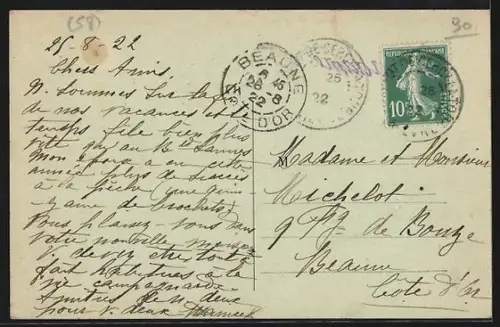 (58)
30
25-8-22
Chers Amis,
N. sommes sur la fin
de nos vacances et le
temps file bien plus
vite qu'au
Mon a eu cette
année plus de succès
à la pêche (une quin-
zaine de brochets)
Vous plaisez-vous dans
votre nouvelle maison
V. devez être tout à
fait habitués à la
vie campagnarde
Amitiés de n. deux
pour v. deux
BEAUNE
22
CÔTE D'OR
25
22
RÉPUBLIQUE FRANÇAISE
10c
POSTES
Madame et Monsieur
Michelot
9 Fg de Bouze
Beaune
Côte d'Or